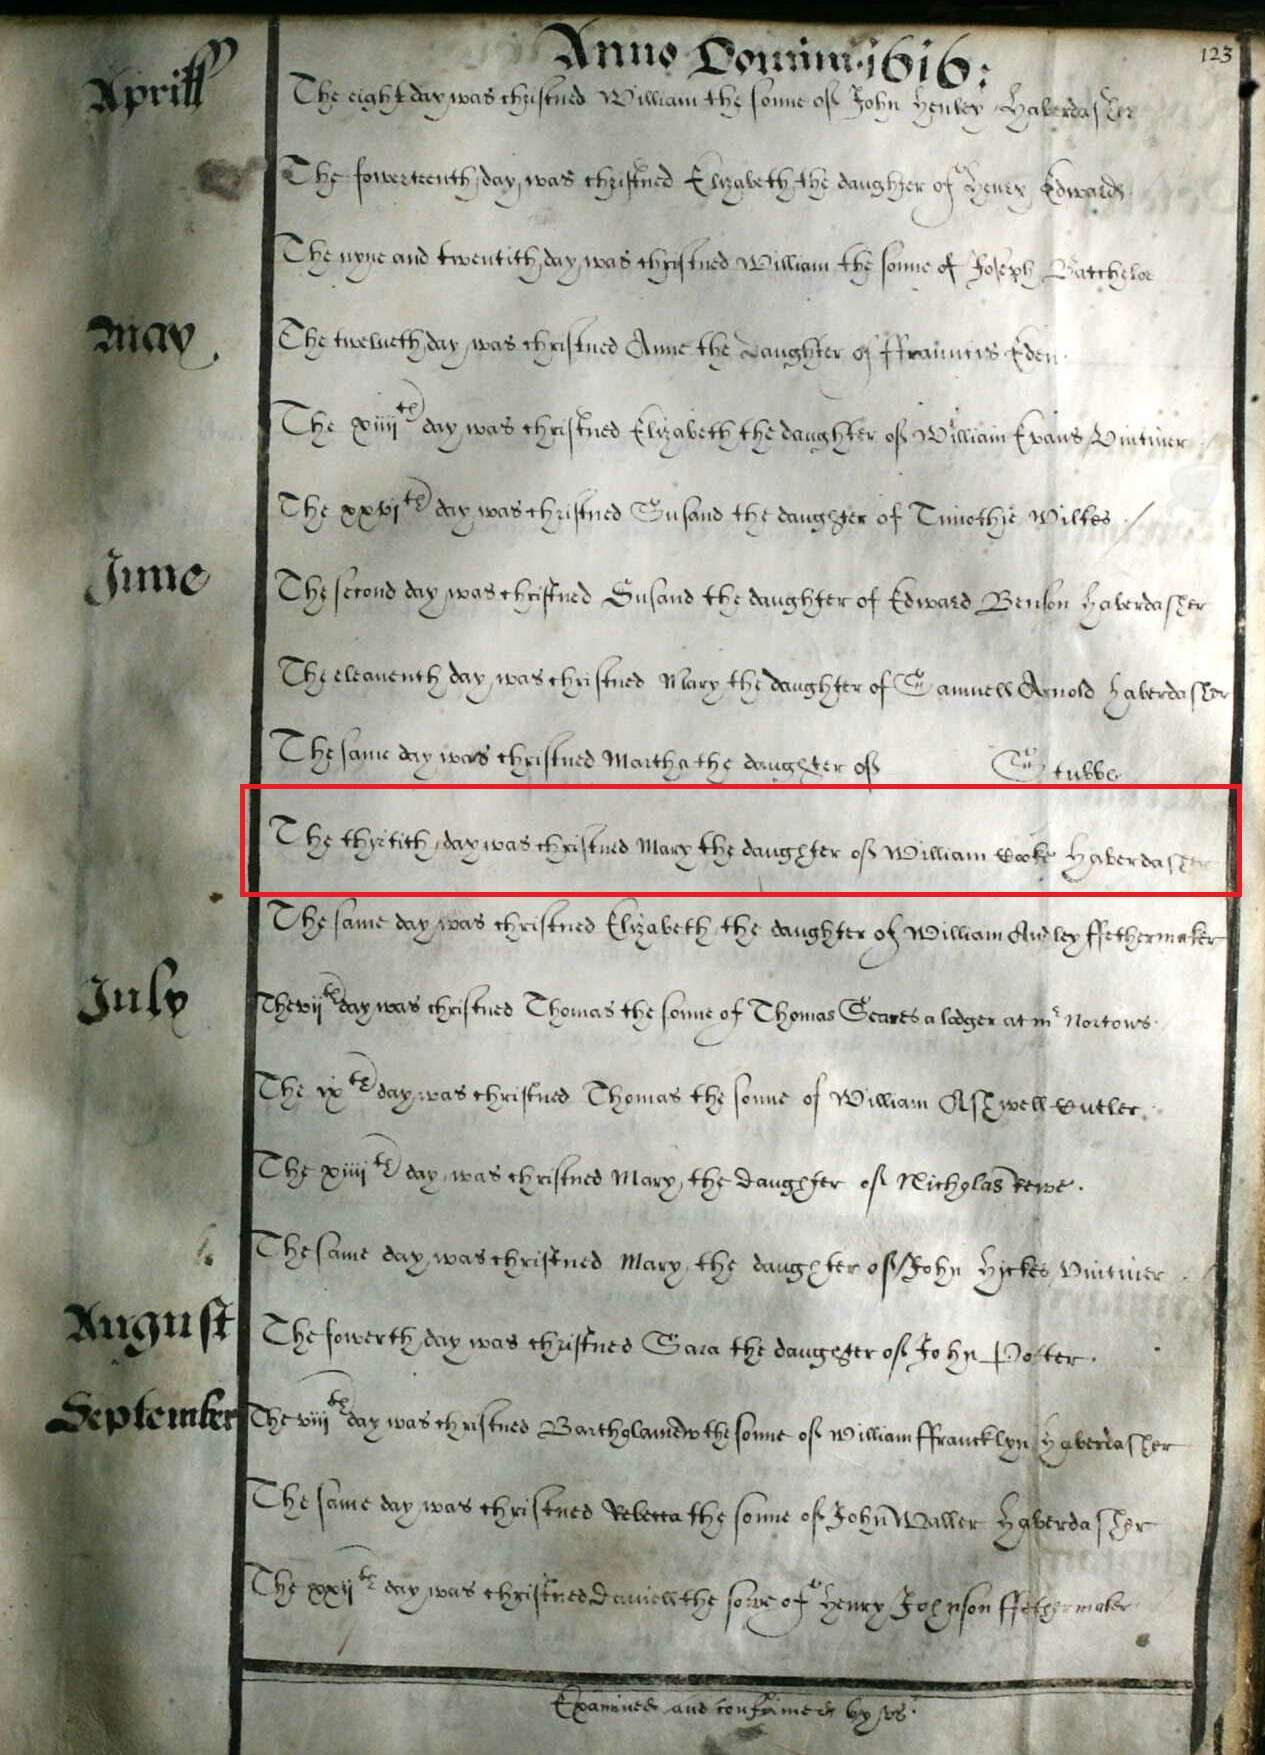 123
Anno Domini 1616:
Aprill
The eight day was christned William the sonne of John Henley Haberdasher
The fowerteenth day was christned Elizabeth the daughter of Henry Edwards
The nyne and twentith day was christned William the sonne of Joseph Batchelor
May
The twelueth day was christned Anne the daughter of ffrauncis Eden
The xiiijth day was christned Elizabeth the daughter of William Evans Vintner
The xxvjth day was christned Susand the daughter of Timothie Wilkes
June
The second day was christned Susand the daughter of Edward Benson Haberdasher
The eleauenth day was christned Mary the daughter of Samuell Arnold Haberdasher
The same day was christned Martha the daughter of Stubbe
The thirtith day was christned Mary the daughter of William Cooke Haberdasher
The same day was christned Elizabeth the daughter of William Audley ffethermaker
July
The vijth day was christned Thomas the sonne of Thomas Seares a lodger at mr Nortons
The ixth day was christned Thomas the sonne of William Ashwell Cutler
The xiiijth day was christned Mary the daughter of Nicholas Rewe
The same day was christned Mary the daughter of John Hickes Vintner
August
The fowerth day was christned Sara the daughter of John Potter
September
The viijth day was christned Bartholamew the sonne of William ffrancklyn Haberdasher
The same day was christned Rebecca the sonne of John Waller Haberdasher
The xxijth day was christned Daniell the sonne of Henry Johnson ffethermaker
Examined and confirmed by vs